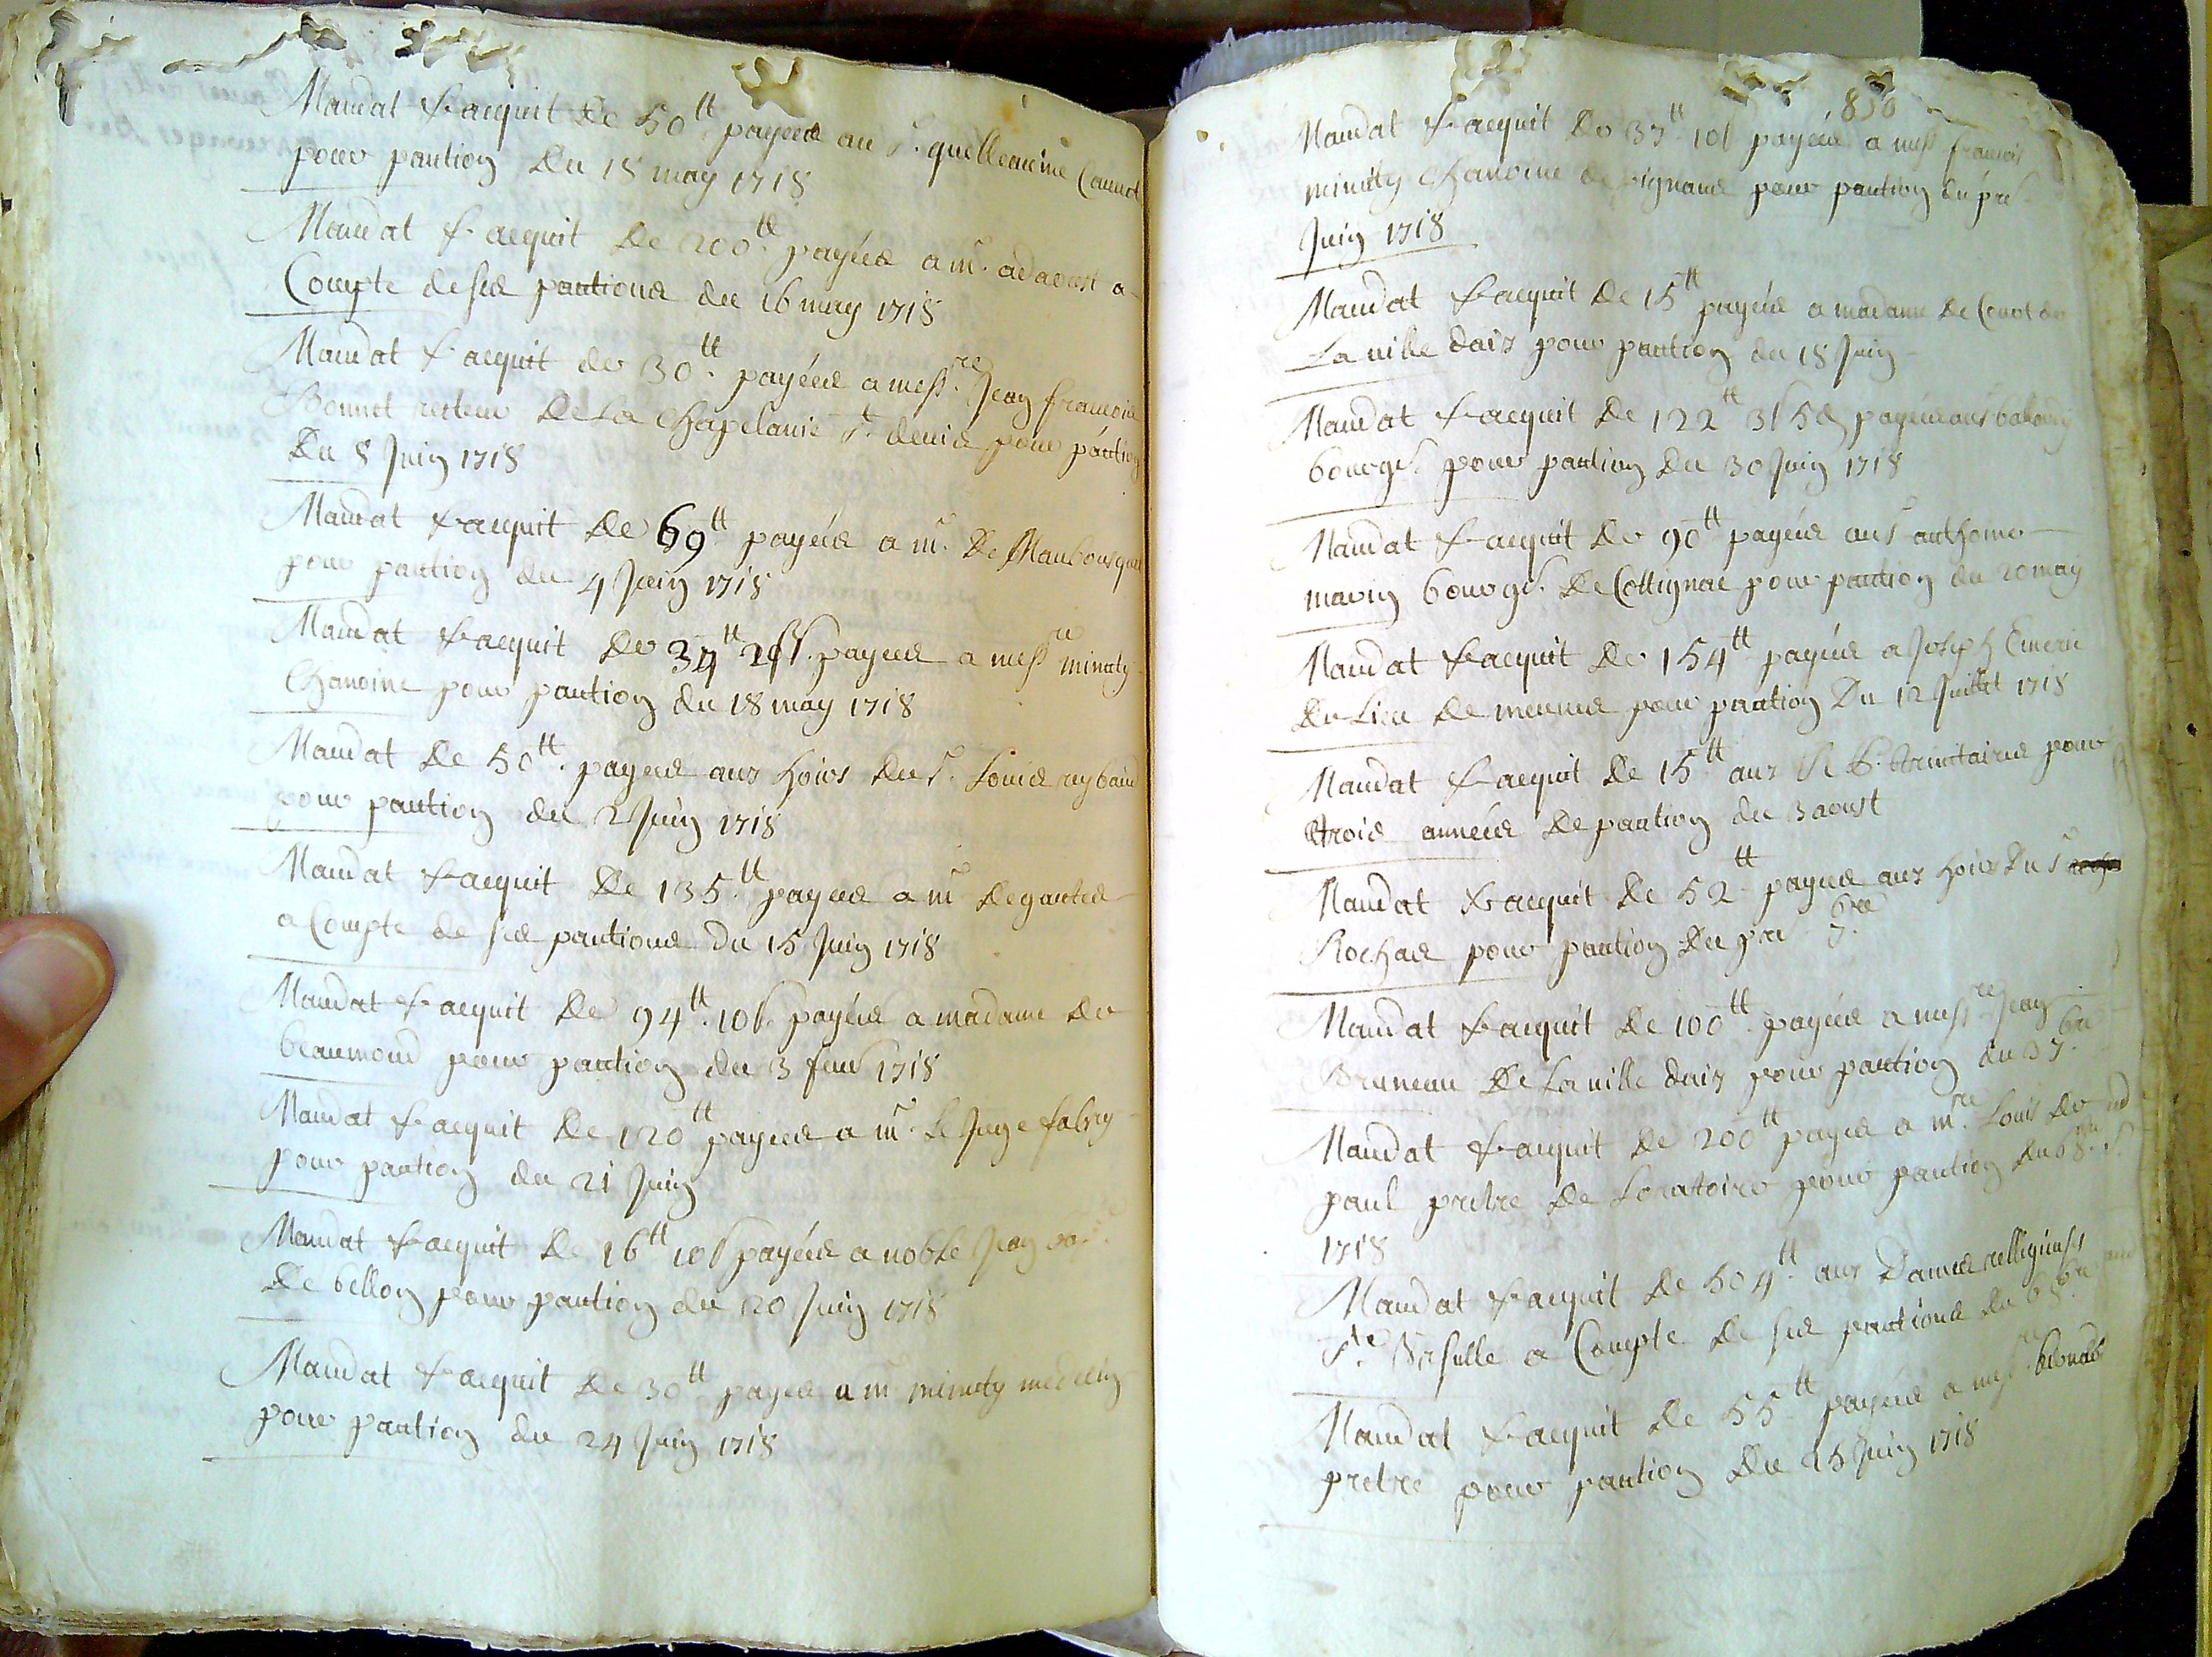 Mandat & acquit de 50tt payées au Sr
pour pantion du 18 may 1718
Mandat & acquit de 200tt payées a mr. adaoust a
Compte de ses pantions du 16 may 1718
Mandat & acquit de 30tt payées a messre Jean francois
Bonnet recteur de La Chapelanie St denis pour pantion
Du 8 Juin 1718
Mandat & acquit de 69tt payées a mr. De
pour pantion du 4 Juin 1718
Mandat & acquit de 34tt payées a messre minuty
Chanoine pour pantion du 18 may 1718
Mandat de 50tt payées aux hoirs du Sr. Louis reybaud
pour pantion du 2 Juin 1718
Mandat & acquit de 135tt payées a mr degantes
a Compte de ses pantions du 15 Juin 1718
Mandat & acquit de 94tt 10s payées a madame de
beaumond pour pantion du 3 1718
Mandat & acquit de 120tt payées a mr. Le Juge fabry
pour pantion du 21 Juin
Mandat & acquit de 16tt 10s payées a noble Jean
De bellon pour pantion du 20 Juin 1718
Mandat & acquit de 30tt payés a mr minuty medecin
pour pantion du 24 Juin 1718
830
Mandat & acquit de 37tt 10s payées a messe francois
minuty Chanoine de pignans pour pantion du pre
Juin 1718
Mandat & acquit de 15tt payées a madame de
La ville daix pour pantion du 18 Juin
Mandat & acquit de 122tt 3s 5d payées au sr
bourgs. pour pantion du 30 Juin 1718
Mandat & acquit de 90tt payées au sr anthoine
marin bourgs. De Cottignac pour pantion du 20 may
Mandat & acquit de 154tt payées a Joseph Emeric
du Lieu de meunes pour pantion Du 12 Juillet 1718
Mandat & acquit de 15tt aux R P. trinitaires pour
trois années de pantion du 3 aoust
Mandat & acquit de 52tt payées aux hoirs Du Sr
Rochas pour pantion du pre 7bre
Mandat & acquit de 100tt payées a messre Jean
Bruneau de La ville daix pour pantion du 3 7bre
Mandat & acquit de 200tt payés a mre Louis de
paul pretre de Loratoire pour pantion du 6 8bre
1718
Mandat & acquit de 504tt aux Dames relligieuses
Ste Ursulle a Compte de ses pantions du 6 8bre
Mandat & acquit de 55tt payées a messre
pretre pour pantion du 25 Juin 1718